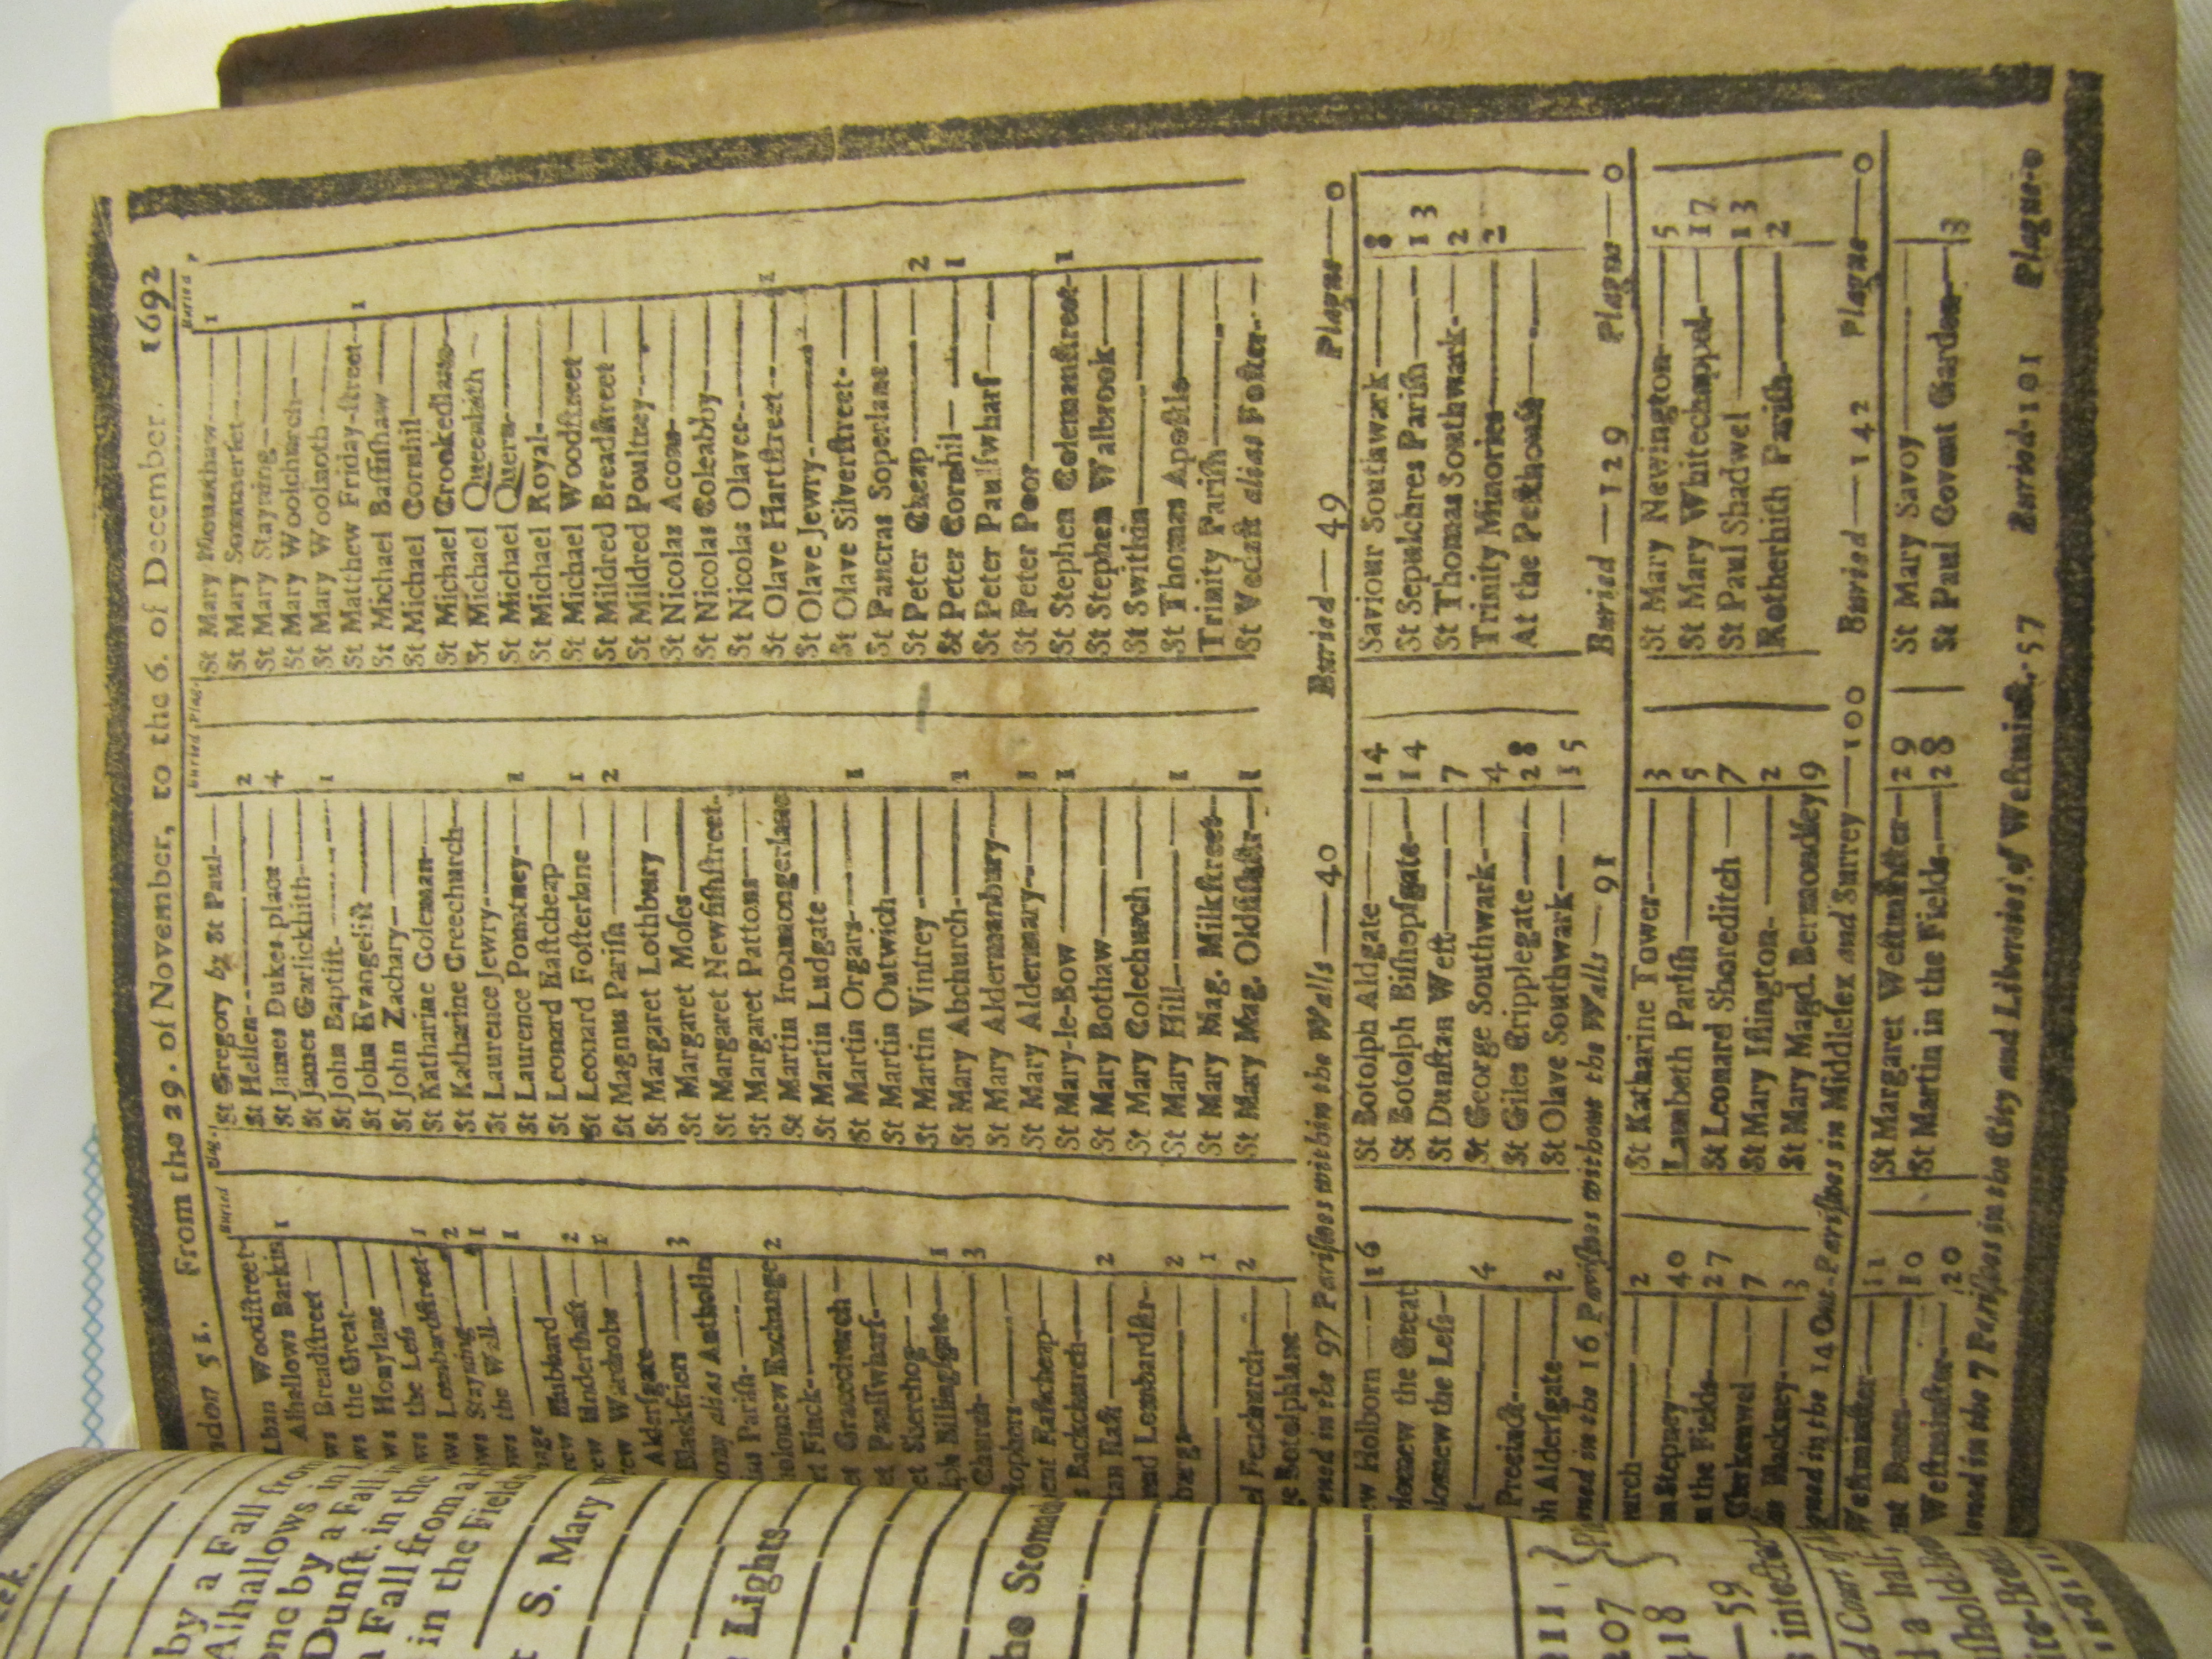 ndon 51. From the 29. of November, to the 6. of December. 1692
Buried Plag.
Lban Woodſtreet-
Alhallows Barkin 1
ws Breadſtreet
ws the Great
ws Honylane
ws the Leſs 1
ws Lombardſtreet 2
ws Stayning 1
ws the Wall 1
rew Hubbard
rew Underſhaft 2
rew Wardrobe 1
Alderſgate
Blackfriers 3
ony alias Antholin
ius Pariſh
olomew Exchange 2
et Finck
et Gracechurch
et Paulſwharf
et Sherehog
lph Billingſgate 1
Church 3
ſtophers
ent Eaſtcheap
s Backchurch
tan Eaſt 2
nd Lombardſtr
burge 2
1
el Fenchurch 2
e Botolphlane
Buried Plag.
St Gregory by St Paul
St Hellen 2
St James Dukes place 4
St James Garlickhith
St John Baptiſt 1
St John Evangeliſt
St John Zachary
St Katharine Coleman
St Katharine Creechurch
St Laurence Jewry
St Laurence Pountney 1
St Leonard Eaſtcheap
St Leonard Foſterlane 1
St Magnus Pariſh 2
St Margaret Lothbury
St Margaret Moſes
St Margaret Newfiſhſtreet
St Margaret Pattons
St Martin Ironmongerlane
St Martin Ludgate
St Martin Orgars 1
St Martin Outwich
St Martin Vintrey
St Mary Abchurch 1
St Mary Aldermanbury
St Mary Aldermary 1
St Mary-le-Bow 1
St Mary Bothaw
St Mary Colechurch
St Mary Hill 1
St Mary Mag. Milkſtreet
St Mary Mag. Oldfiſhſtr 1
Buried P
St Mary Mounthaw 1
St Mary Sommerſet
St Mary Stayning
St Mary Woolchurch
St Mary Woolnoth
St Matthew Friday-ſtreet 1
St Michael Baſſiſhaw
St Michael Cornhil
St Michael Crookedlane
St Michael Queenhith
St Michael Quern
St Michael Royal
St Michael Woodſtreet
St Mildred Breadſtreet
St Mildred Poultrey
St Nicolas Acons
St Nicolas Coleabby
St Nicolas Olaves
St Olave Hartſtreet 1
St Olave Jewry
St Olave Silverſtreet
St Pancras Soperlane
St Peter Cheap 2
St Peter Cornhil 1
St Peter Paulſwharf
St Peter Poor
St Stephen Colemanſtreet 1
St Stephen Walbrook
St Swithin
St Thomas Apoſtle
Trinity Pariſh
St Vedaſt alias Foſter
ened in the 97 Pariſhes within the Walls—40 Buried—49 Plague—0
ew Holborn 16
olomew the Great
lomew the Leſs
4
Precinct
ph Alderſgate 2
St Botolph Aldgate 14
St Botolph Biſhopſgate 14
St Dunſtan Weſt 7
St George Southwark 4
St Giles Cripplegate 28
St Olave Southwark 15
Saviour Southwark 8
St Sepulchres Pariſh 13
St Thomas Southwark 2
Trinity Minories 2
At the Peſthouſe
ned in the 16 Pariſhes without the Walls—91 Buried—129 Plague—0
urch 2
n Stepney 40
n the Fields 27
Clerkenwel 7
Hackney 3
St Katharine Tower 3
Lambeth Pariſh 5
St Leonard Shoreditch 7
St Mary Iſlington 2
St Mary Magd. Bermondſey 9
St Mary Newington 5
St Mary Whitechappel 17
St Paul Shadwel 13
Rotherhith Pariſh 2
ned in the 14 Out-Pariſhes in Middleſex and Surrey—100 Buried—142 Plague—0
Weſtminſter 11
nt Danes 10
Weſtminſter 20
St Margaret Weſtminſter 29
St Martin in the Fields 28
St Mary Savoy
St Paul Covent Garden 3
ened in the 7 Pariſhes in the City and Liberties of Weſtminſt. 57 Buried-101 Plague-0
eek.
by a Fall from
Alhallows in
one by a Fall
Dunſt. in the
a Fall from a
in the Fields
S. Mary
Lights
he Stomach
211
207
418
59
s infected
d Court of
d a half
ſhold-Bre
ite-Bread